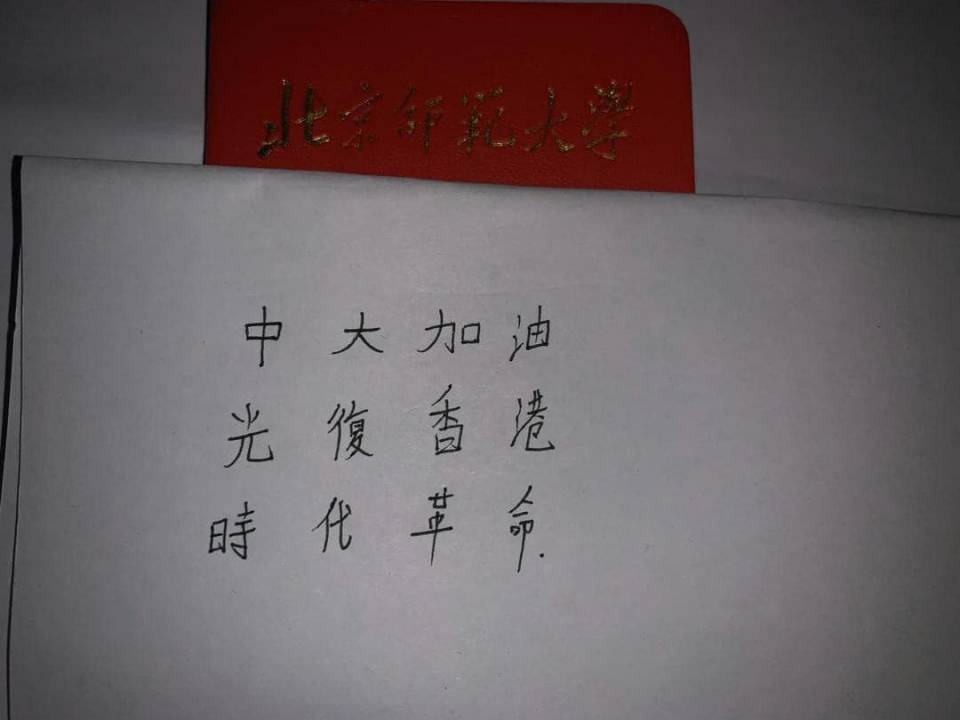 北京师范大學
中大加油
光復香港
時代革命.